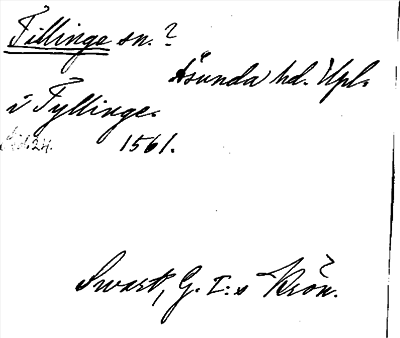 Fillinge sn.?
Åsunda hd. Upl.
i Fyllinge.
1561.
Swart, G. I:s Krön.